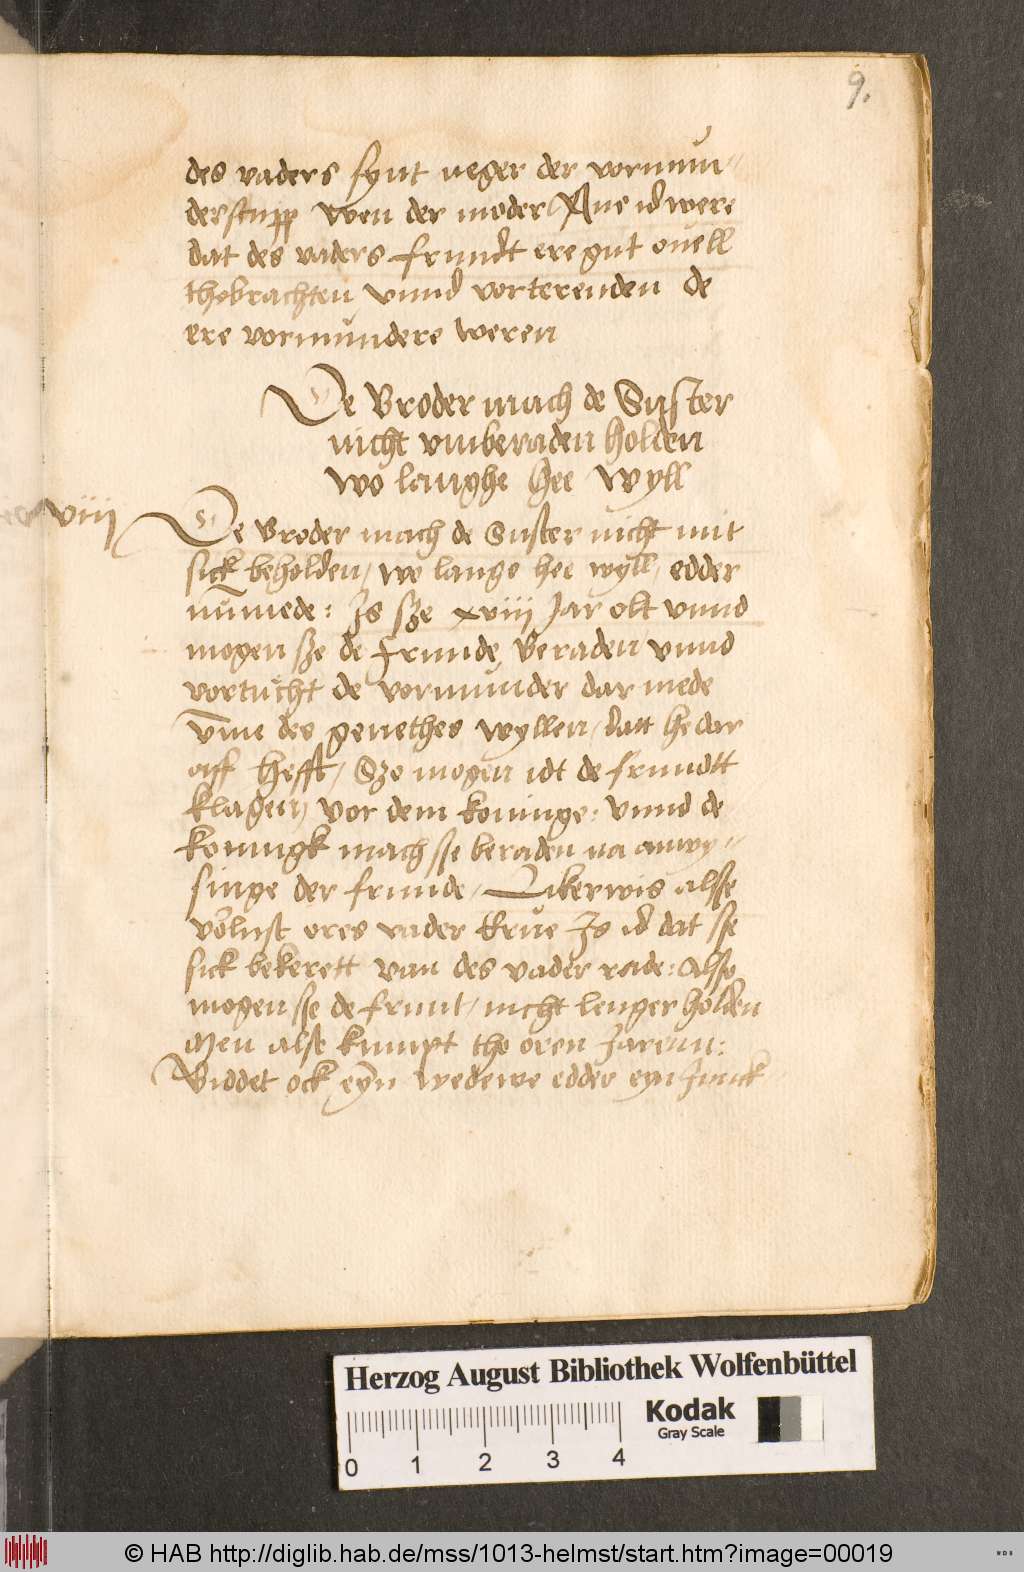 9.
des vaders synt neger der vormun-
derscupp wen der moder Ane id were
dat des vaders frundt ere gut ouell
thobrachten vnnd vorterenden de
ere vormundere weren
De Broder mach de Suster
nicht vmberaden holden
wo langhe hee wyll
viij
De Broder mach de Suster nicht mit
sick beholden / wo lange hee wyll / edder
mede : Is sze xviii Jar olt vnnd
mogen sze de frunde Beraden vnnd
vortucht de vormunder dar mede
vme des genethes wyllen / datt he dar
aff hefft / Szo mogen idt de frundtt
klagen vor dem koninge : vnnd de
koningk mach sse beraden na anwy-
singe der frunde / Likerwis alsse
volust ores vader Erue Is id dat sse
sick bekerett van des vader rade : Also
mogen sse de frunt / nicht lenger holden
Men alse kumpt tho oren Jarenn :
Biddet ock eyn wedewe edder eyn Junck
Herzog August Bibliothek Wolfenbüttel
Kodak
Gray Scale
0 1 2 3 4
© HAB http://diglib.hab.de/mss/1013-helmst/start.htm?image=00019